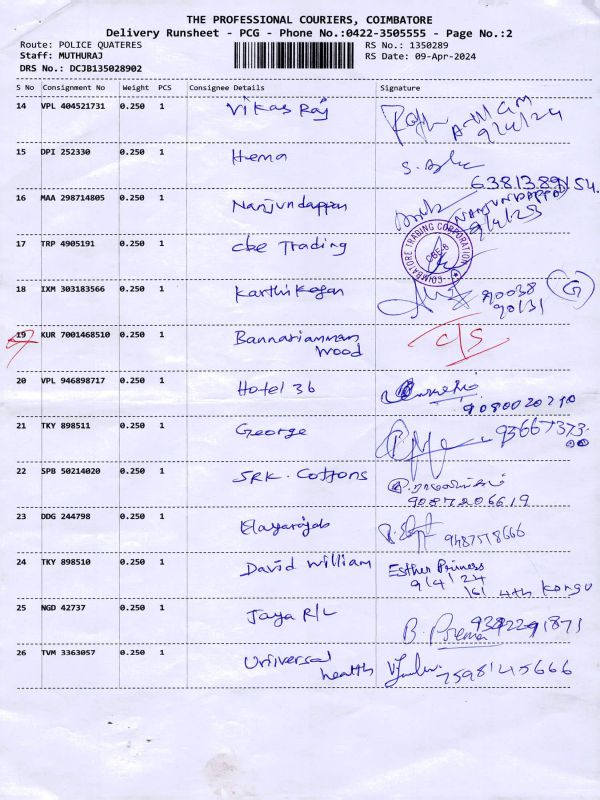 THE PROFESSIONAL COURIERS, COIMBATORE
Delivery Runsheet - PCG - Phone No.:0422-3505555 - Page No.:2
Route: POLICE QUATERES RS No.: 1350289
Staff: MUTHURAJ RS Date: 09-Apr-2024
DRS No.: DCJB135028902
S No Consignment No Weight PCS Consignee Details Signature
14 VPL 404521731 0.250 1 Vikas Raj
9/4/24
15 DPI 252330 0.250 1 Hema
6381389154.
16 MAA 298714805 0.250 1 Nanjundappan
NANJUNDAPPA
9/4/23
17 TRP 4905191 0.250 1 cbe Trading
COIMBATORE TRADING CORPORATION
CBE-6
18 IXM 303183566 0.250 1 Karthikeyan
90038
90131
19 KUR 7001468510 0.250 1 Bannariamman
wood
C/S
20 VPL 946898717 0.250 1 Hotel 36
9080020710
21 TKY 898511 0.250 1 George
93667373
22 SPB 50214020 0.250 1 SRK. Cottons
9087206619
23 DDG 244798 0.250 1 Elayaraja
9487518666
24 TKY 898510 0.250 1 David william Esther Princess
9/4/24
4th Kongu
25 NGD 42737 0.250 1 Jaya R/L
B. Prema
26 TVM 3363057 0.250 1 Universal
health 7598145666